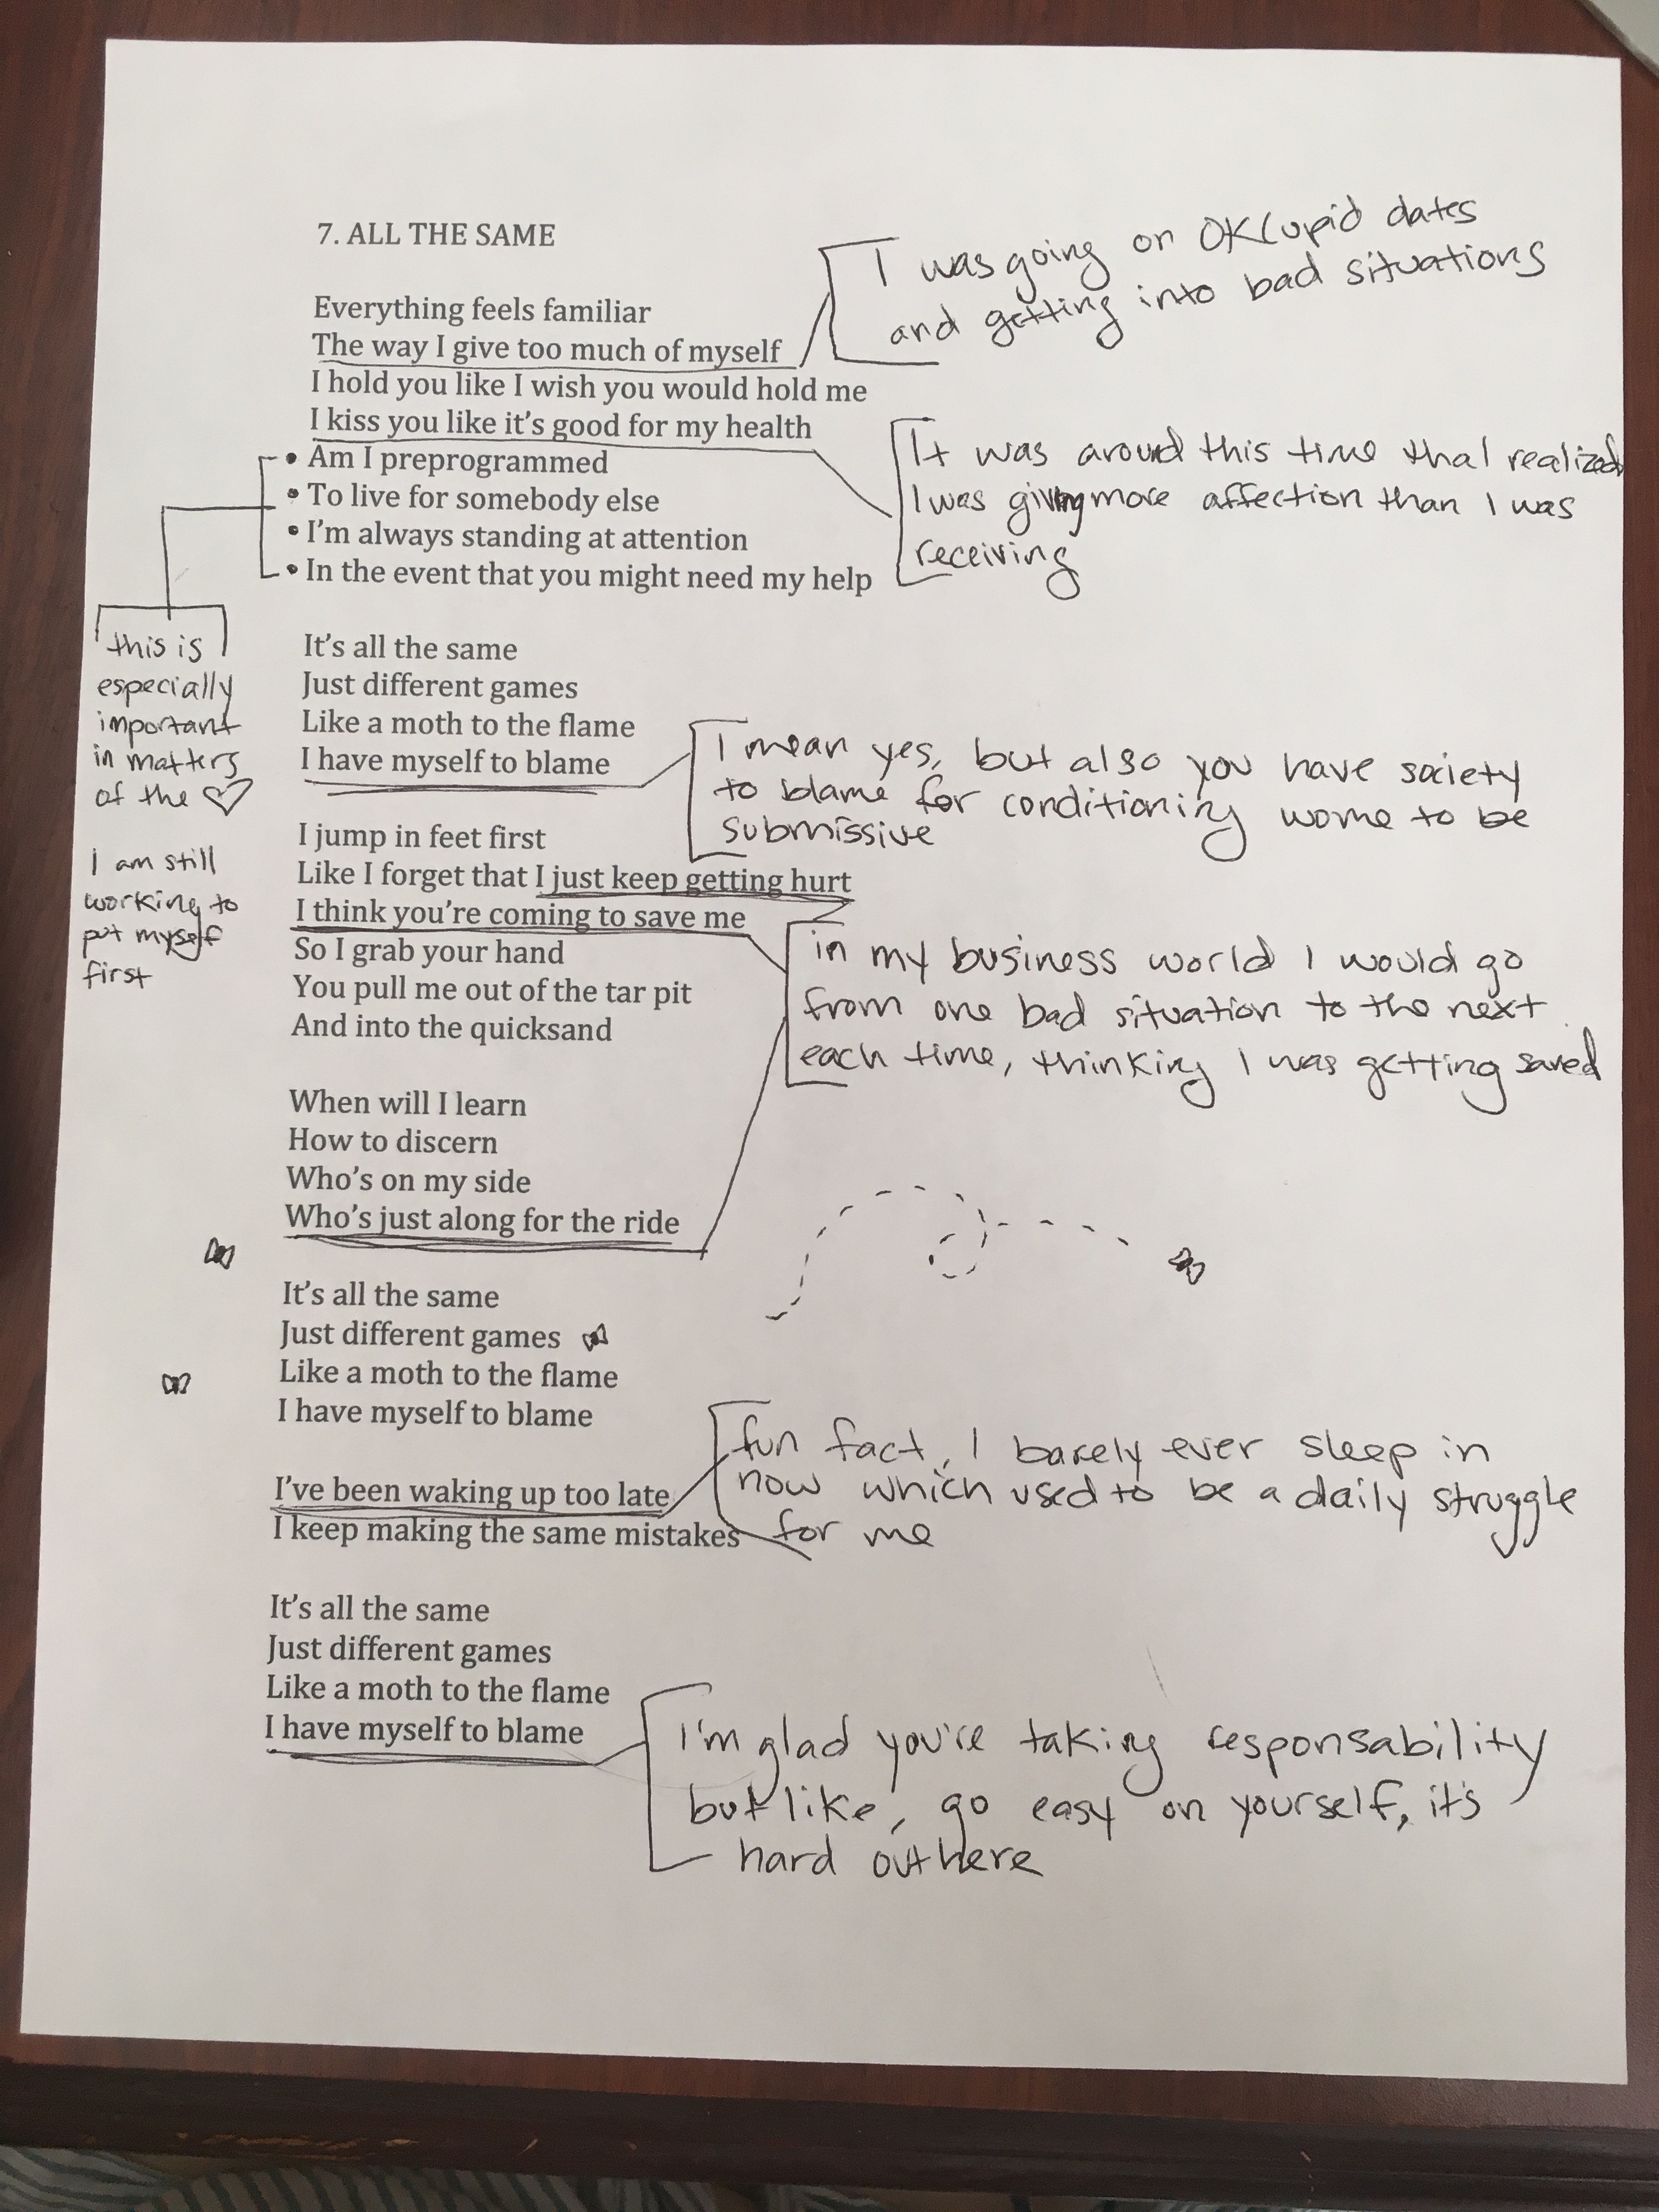 7. ALL THE SAME
I was going on OKCupid dates
and getting into bad situations
Everything feels familiar
The way I give too much of myself
I hold you like I wish you would hold me
I kiss you like it's good for my health
It was around this time that I realized
I was giving more affection than I was
receiving
• Am I preprogrammed
• To live for somebody else
• I'm always standing at attention
• In the event that you might need my help
this is
especially
important
in matters
of the ♡
I am still
working to
put myself
first
It's all the same
Just different games
Like a moth to the flame
I have myself to blame
I mean yes, but also you have society
to blame for conditioning wome to be
submissive
I jump in feet first
Like I forget that I just keep getting hurt
I think you're coming to save me
So I grab your hand
You pull me out of the tar pit
And into the quicksand
in my business world I would go
from one bad situation to the next
each time, thinking I was getting saved
When will I learn
How to discern
Who's on my side
Who's just along for the ride
It's all the same
Just different games
Like a moth to the flame
I have myself to blame
I've been waking up too late
I keep making the same mistakes
fun fact, I barely ever sleep in
now which used to be a daily struggle
for me
It's all the same
Just different games
Like a moth to the flame
I have myself to blame
I'm glad you're taking responsability
but like, go easy on yourself, it's
hard out here